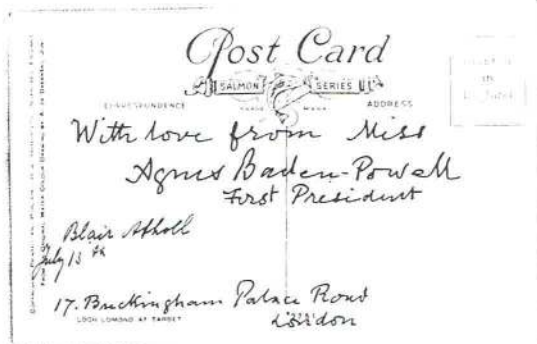 Post Card
SALMON SERIES
TRADE MARK
CORRESPONDENCE ADDRESS
With love from Miss
Agnes Baden-Powell
First President
Blair Atholl
July 13th
17. Buckingham Palace Road
London
LOCH LOMOND AT TARBET